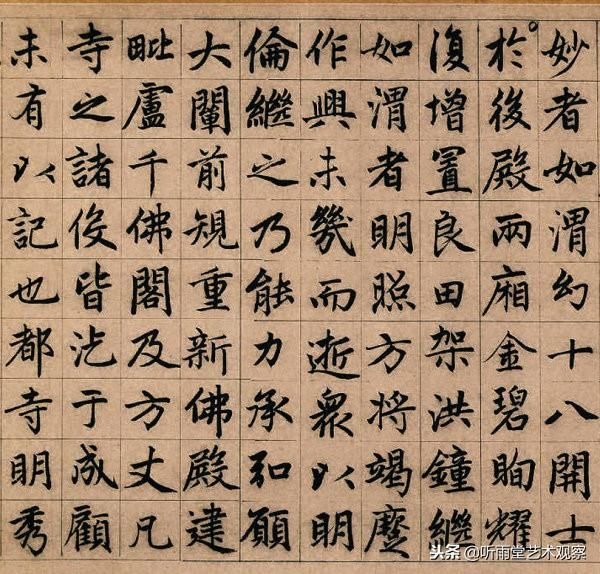 妙者如渭幻十八開士
於後殿兩廂金碧眴耀
復增置良田架洪鐘繼
如渭者明照方將竭
作興未幾而逝衆以明
倫繼之乃能力承弘願
大闡前規重新佛殿建
毗盧千佛閣及方丈凡
寺之諸役皆汔于成顧
未有以記也都寺明秀
头条 @听雨堂艺术观察